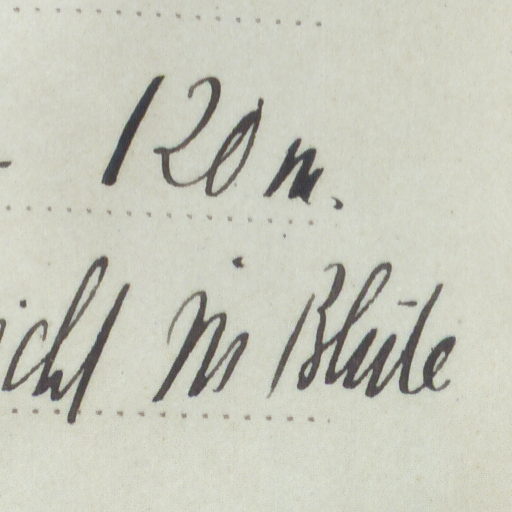 - 120 m.
icht in Blüte